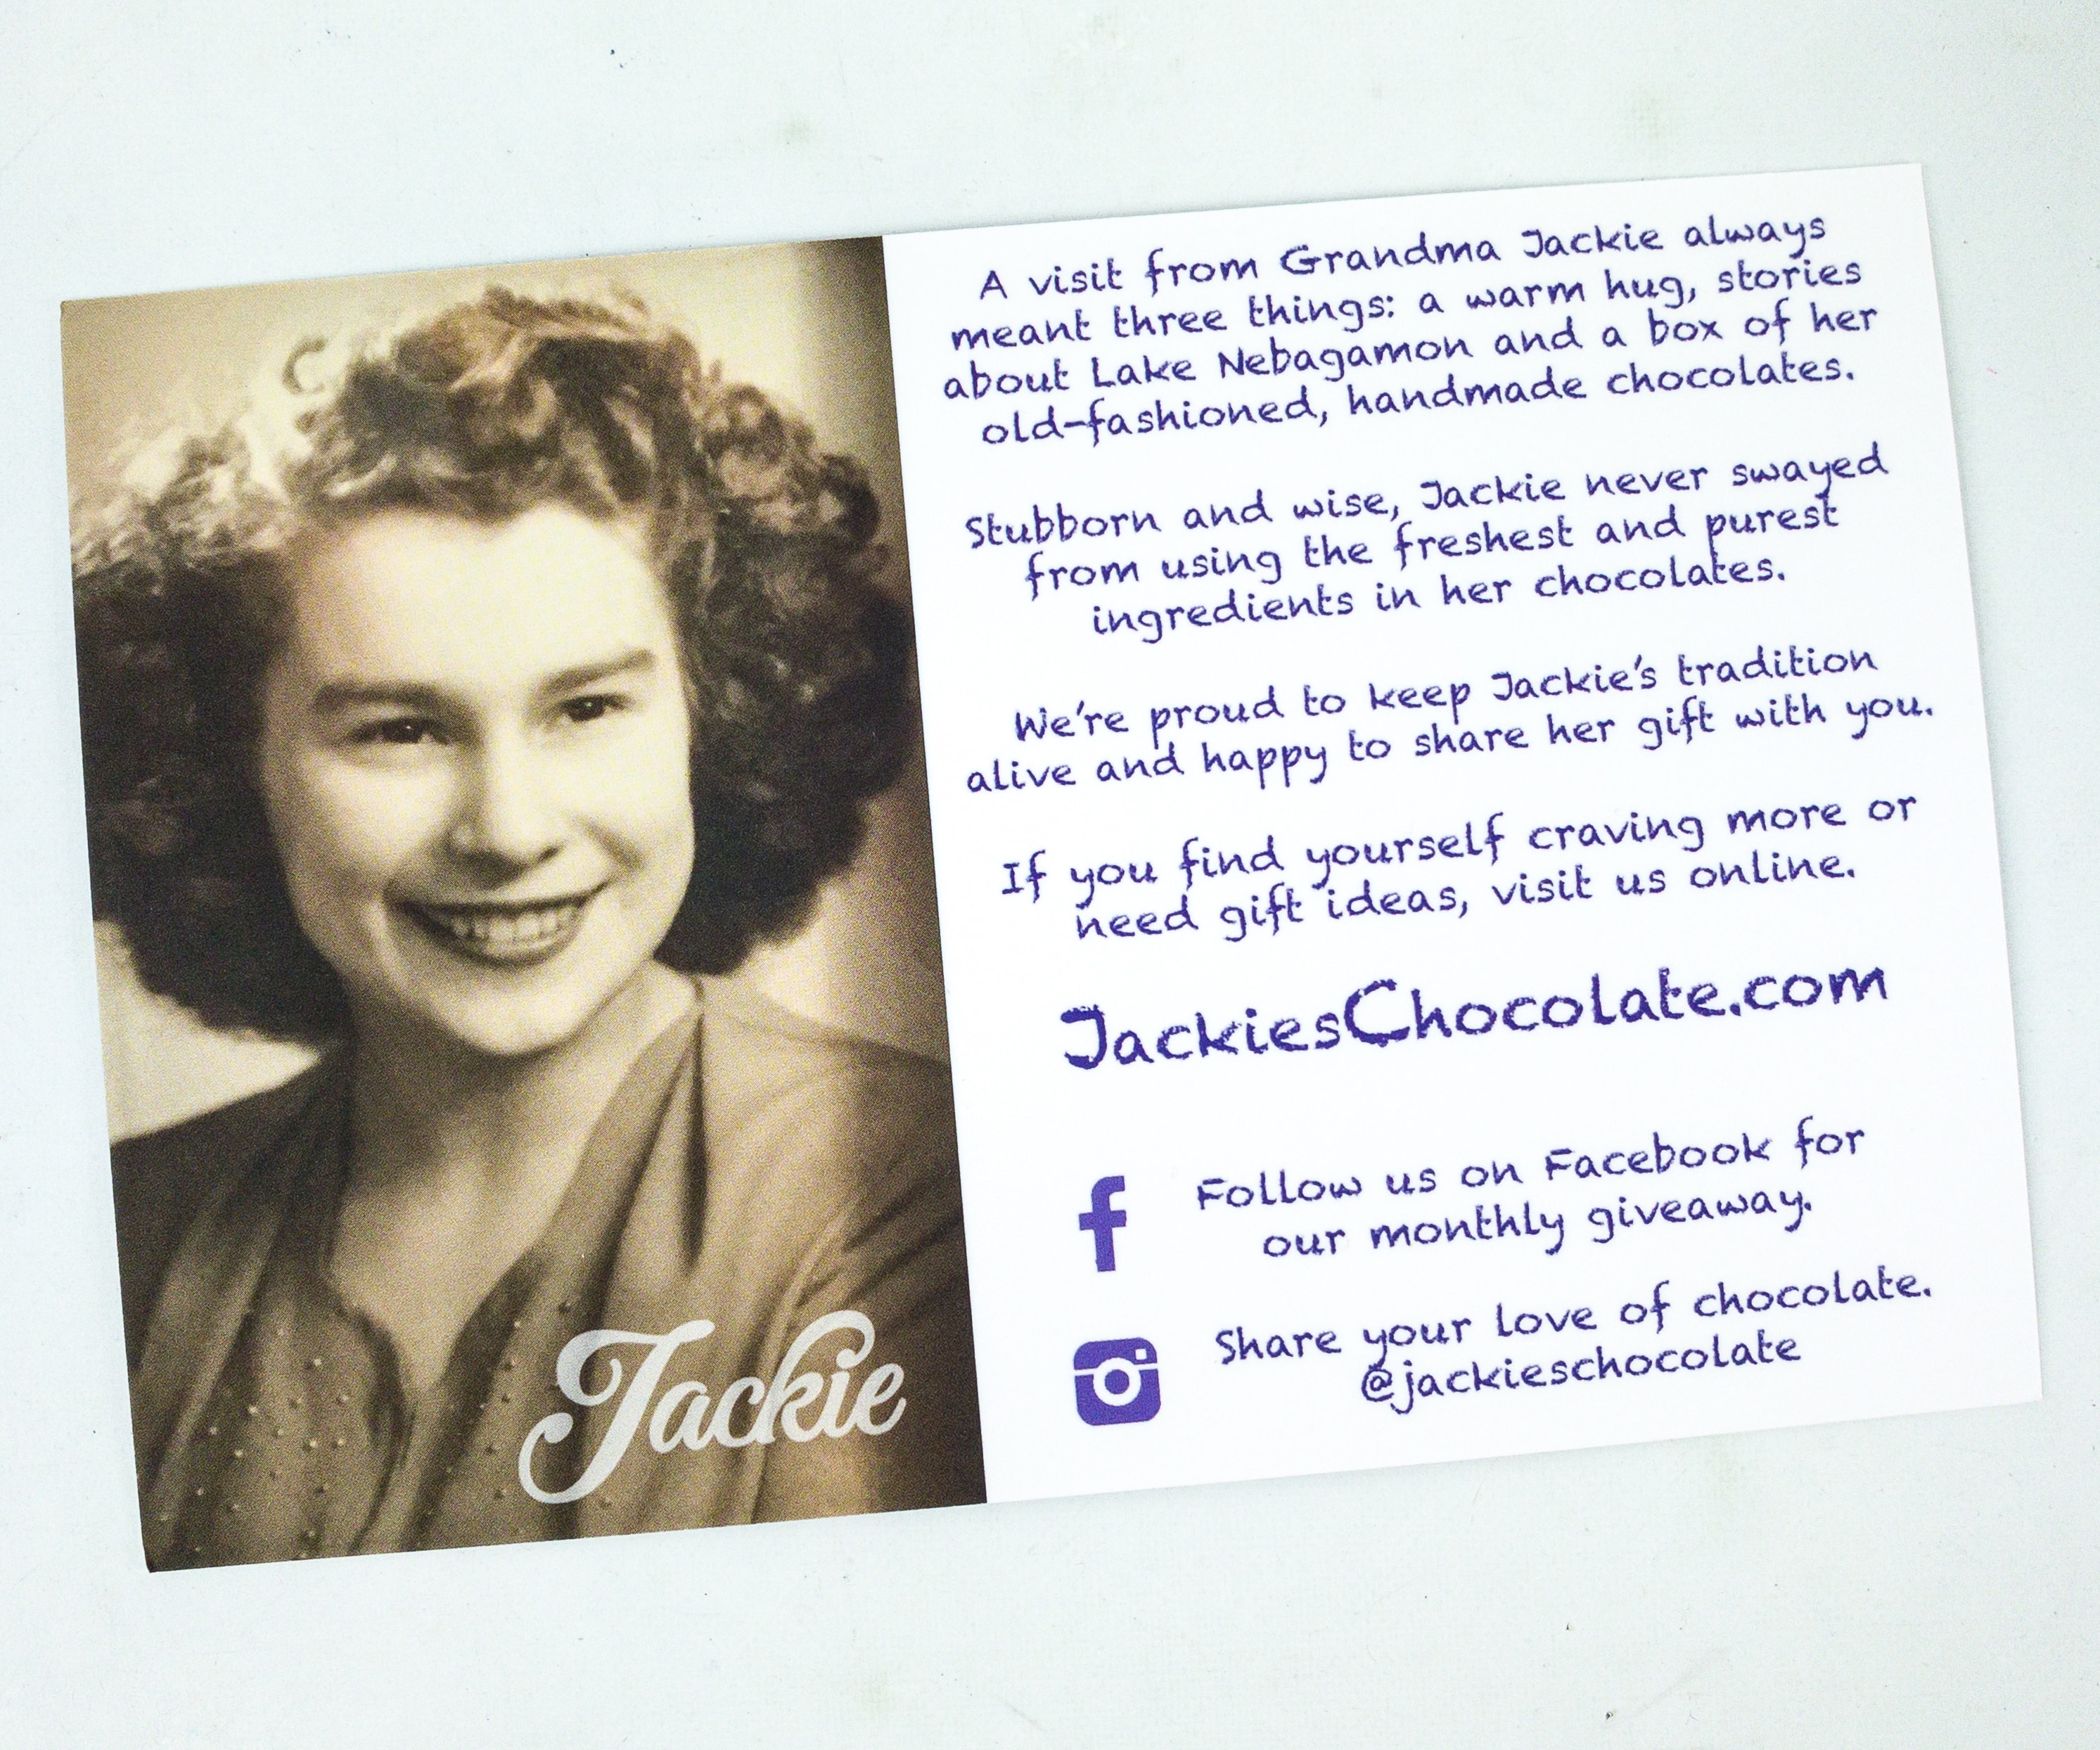 A visit from Grandma Jackie always
meant three things: a warm hug, stories
about Lake Nebagamon and a box of her
old-fashioned, handmade chocolates.
Stubborn and wise, Jackie never swayed
from using the freshest and purest
ingredients in her chocolates.
We're proud to keep Jackie's tradition
alive and happy to share her gift with you.
If you find yourself craving more or
need gift ideas, visit us online.
JackiesChocolate.com
Follow us on Facebook for
our monthly giveaway.
Share your love of chocolate.
@jackieschocolate
Jackie